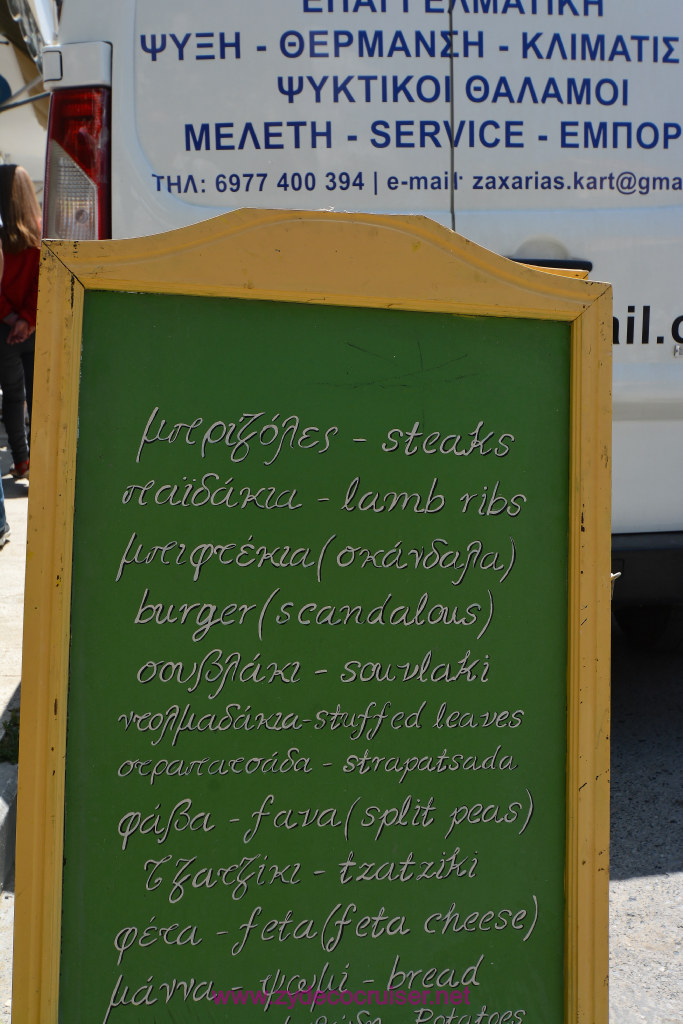 ΕΠΑΓΓΕΛΜΑΤΙΚΗ
ΨΥΞΗ - ΘΕΡΜΑΝΣΗ - ΚΛΙΜΑΤΙΣ
ΨΥΚΤΙΚΟΙ ΘΑΛΑΜΟΙ
ΜΕΛΕΤΗ - SERVICE - ΕΜΠΟΡ
ΤΗΛ: 6977 400 394 | e-mail: zaxarias.kart@gma
ail.c
μπριζόλες - steaks
παϊδάκια - lamb ribs
μπιφτέκια (σκάνδαλα)
burger (scandalous)
σουβλάκι - souvlaki
ντολμαδάκια - stuffed leaves
στραπατσάδα - strapatsada
φάβα - fava (split peas)
τζατζίκι - tzatziki
φέτα - feta (feta cheese)
μάννα - ψωμί - bread
www.zydecocruiser.net
Potatoes